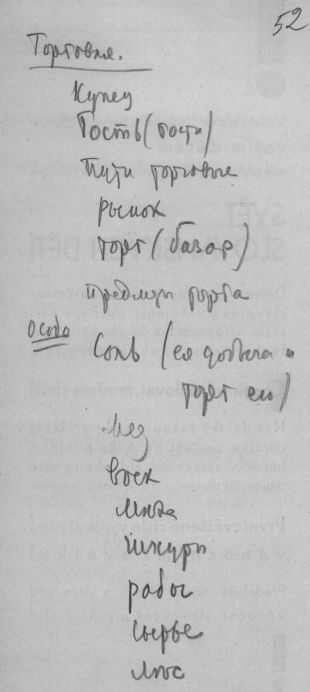 52
Торговля.
Купец
Гость (гости)
Пути торговые
рынок
торг (базар)
предметы торга
особо Соль (ее добыча и
торг ею)
мед
воск
меха
шкуры
рабы
сырье